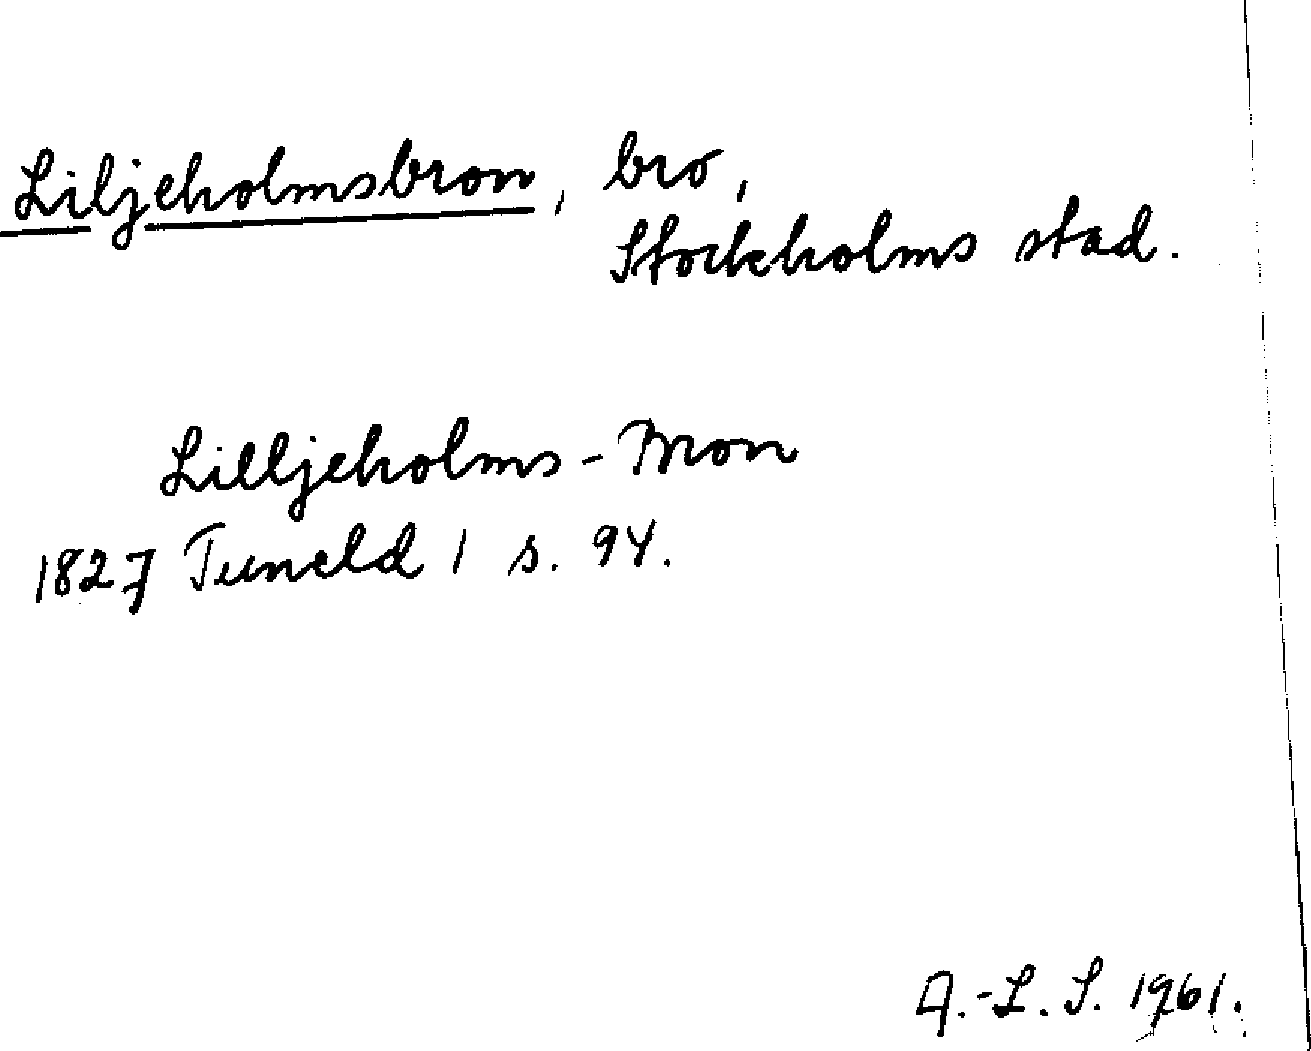 Liljeholmsbron, bro,
Stockholms stad.
Lilljeholms-Bron
1827 Tuneld 1 s. 94.
A.-L. S. 1961.